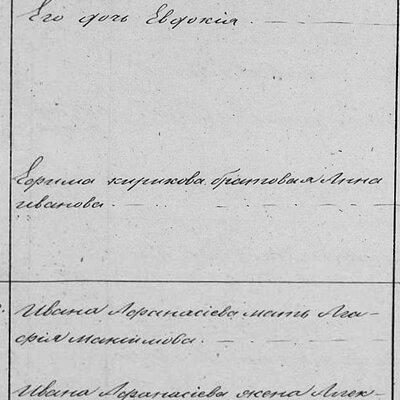 Его дочь Евдокія.
Ефима кирикова братовая Анна
иванова.
Ивана Афанасіева мать Ага-
фія Максімова.
Ивана Афанасіева жена Алек-